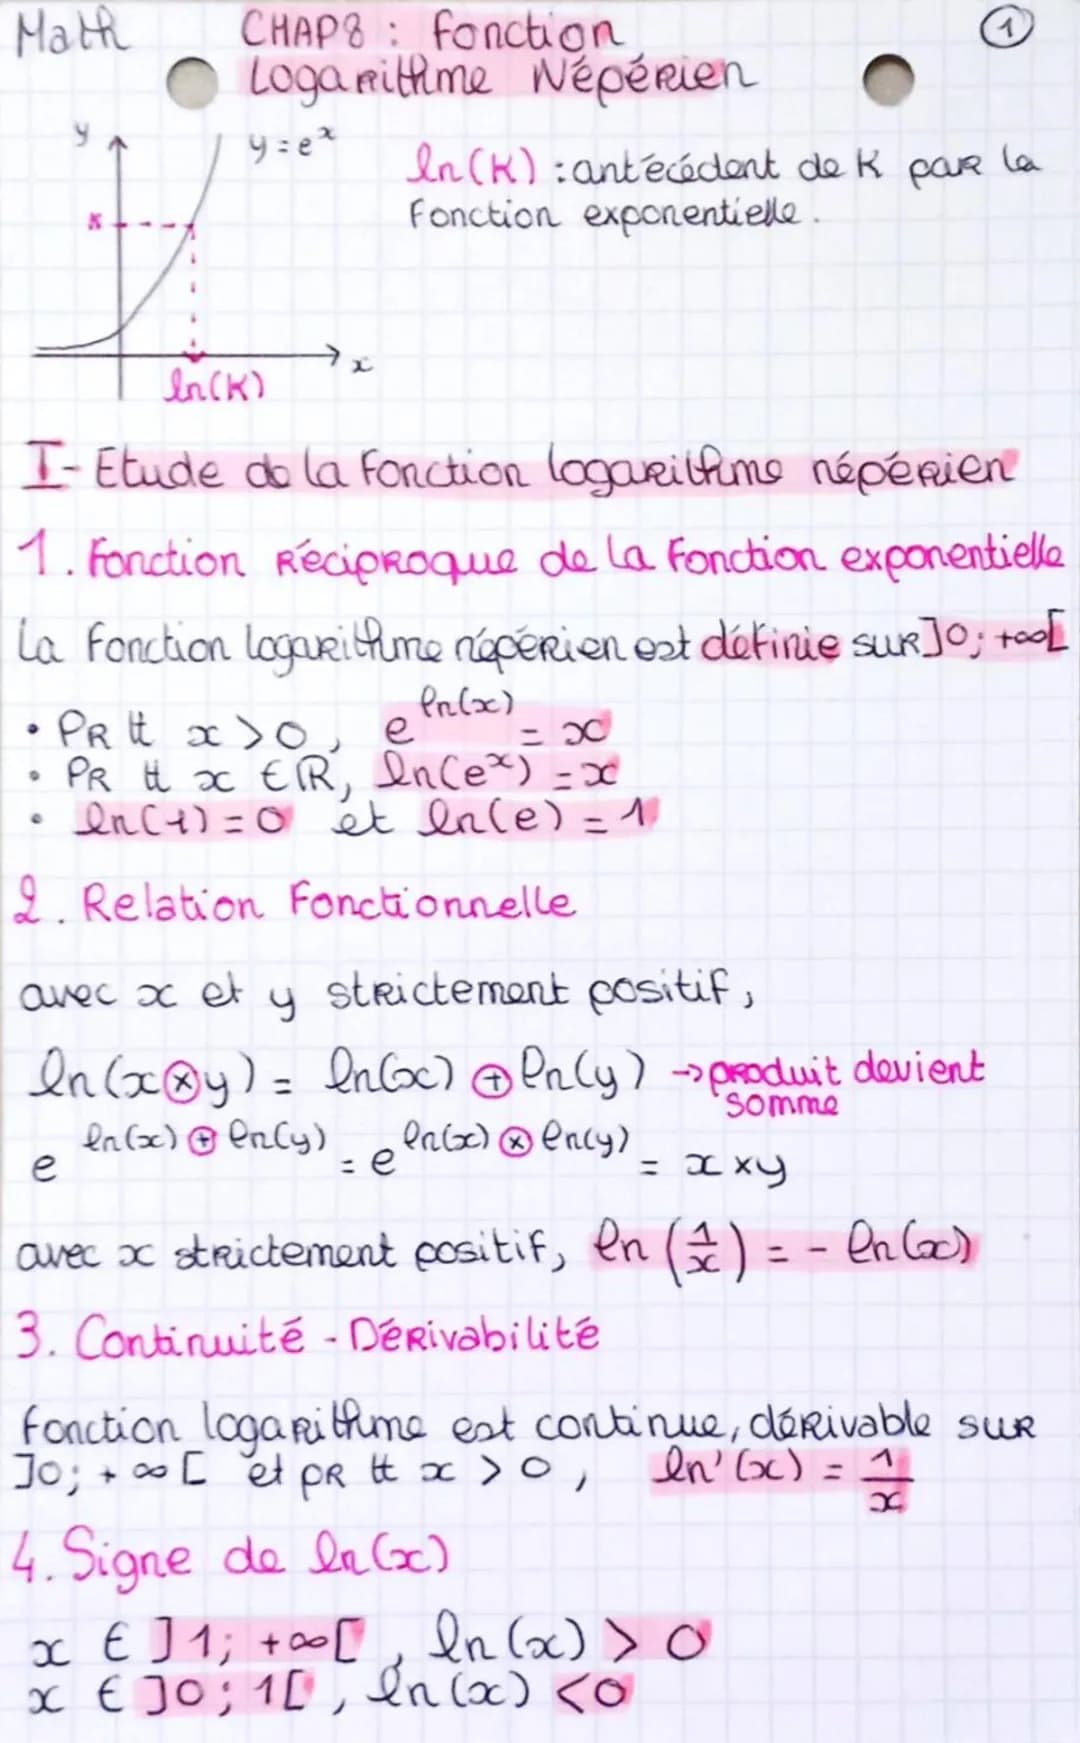 Math CHAP8 : Fonction ①
Logarithme Népérien
y
y = eˣ
K
x
ln(K)
ln(K) : antécédent de K par la
Fonction exponentielle.
I- Etude de la Fonction logarithme népérien
1. Fonction Réciproque de la Fonction exponentielle
La Fonction logarithme népérien est définie sur ]0; +∞[
• PR tt x > 0, e^ln(x) = x
• PR tt x ∈ ℝ, ln(eˣ) = x
• ln(1) = 0 et ln(e) = 1
2. Relation Fonctionnelle
avec x et y strictement positif,
ln(x ⊗ y) = ln(x) ⊕ ln(y) → produit devient
somme
e^ln(x) ⊕ ln(y) = e^ln(x) ⊗ ln(y) = x × y
avec x strictement positif, ln(1/x) = - ln(x)
3. Continuité - Dérivabilité
Fonction logarithme est continue, dérivable sur
]0; +∞[ et pR tt x > 0, ln'(x) = 1/x
4. Signe de ln(x)
x ∈ ]1; +∞[, ln(x) > 0
x ∈ ]0; 1[, ln(x) < 0